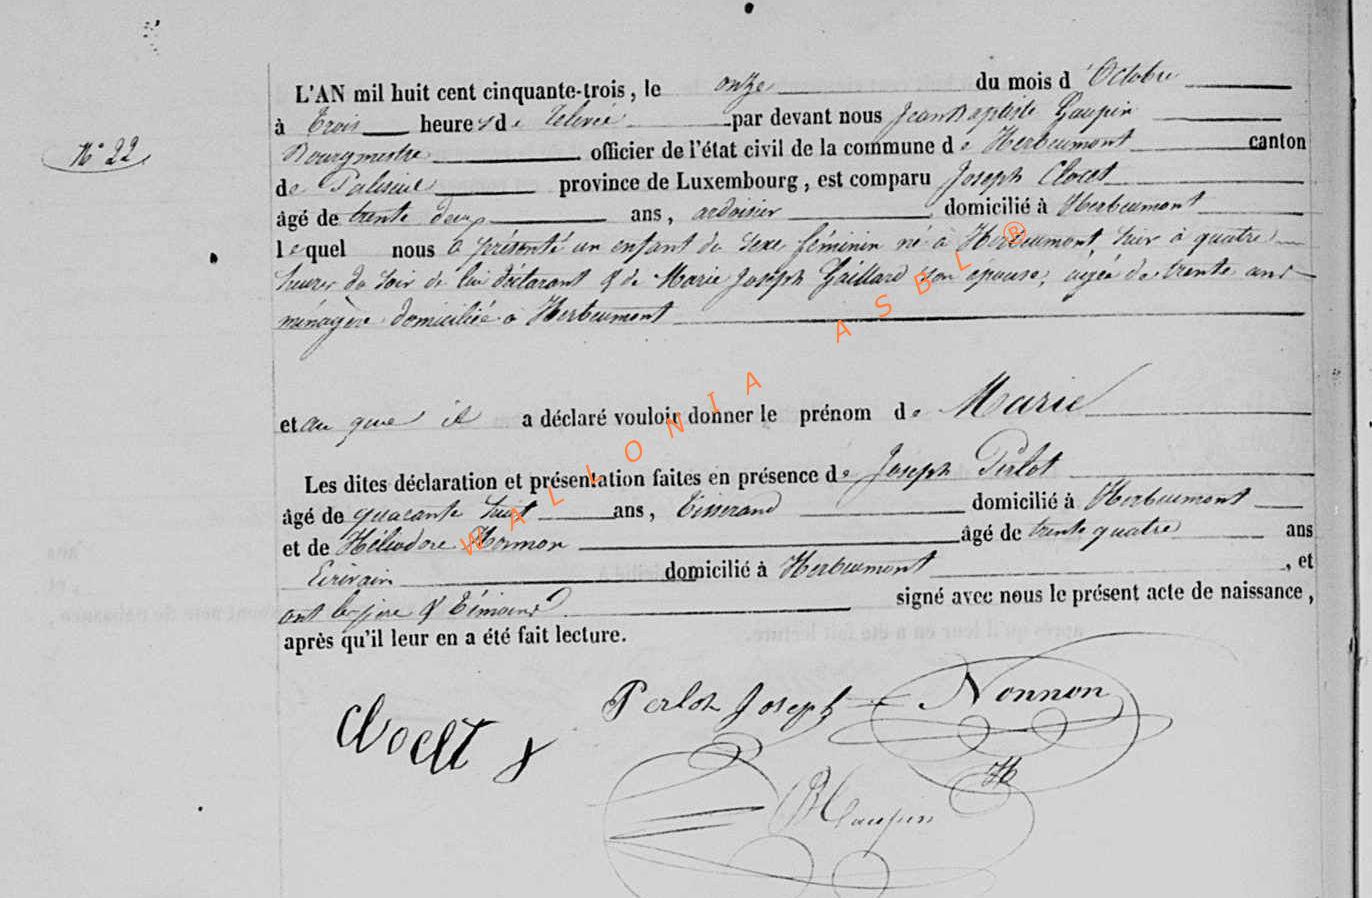 L'AN mil huit cent cinquante-trois, le onze du mois d'Octobre
à trois heures de relevée par devant nous Jean Baptiste Gaupin
N° 22
Bourgmestre officier de l'état civil de la commune de Herbeumont canton
de Paliseul province de Luxembourg, est comparu Joseph Clocet
âgé de trente deux ans, ardoisier domicilié à Herbeumont
lequel nous a présenté un enfant du sexe féminin né à Herbeumont hier à quatre
heures du soir de lui déclarant & de Marie Joseph Gaillard son épouse, âgée de trente ans
ménagère domiciliée à Herbeumont
et au quel il a déclaré vouloir donner le prénom de Marie
Les dites déclaration et présentation faites en présence de Joseph Perlot
âgé de quarante huit ans, Tisserand domicilié à Herbeumont
et de Héliodore Nonnon âgé de trente quatre ans
Ecrivain domicilié à Herbeumont, et
ont les père & témoins signé avec nous le présent acte de naissance,
après qu'il leur en a été fait lecture.
Perlot Joseph Nonnon
H
WALLONIA ASBL ®